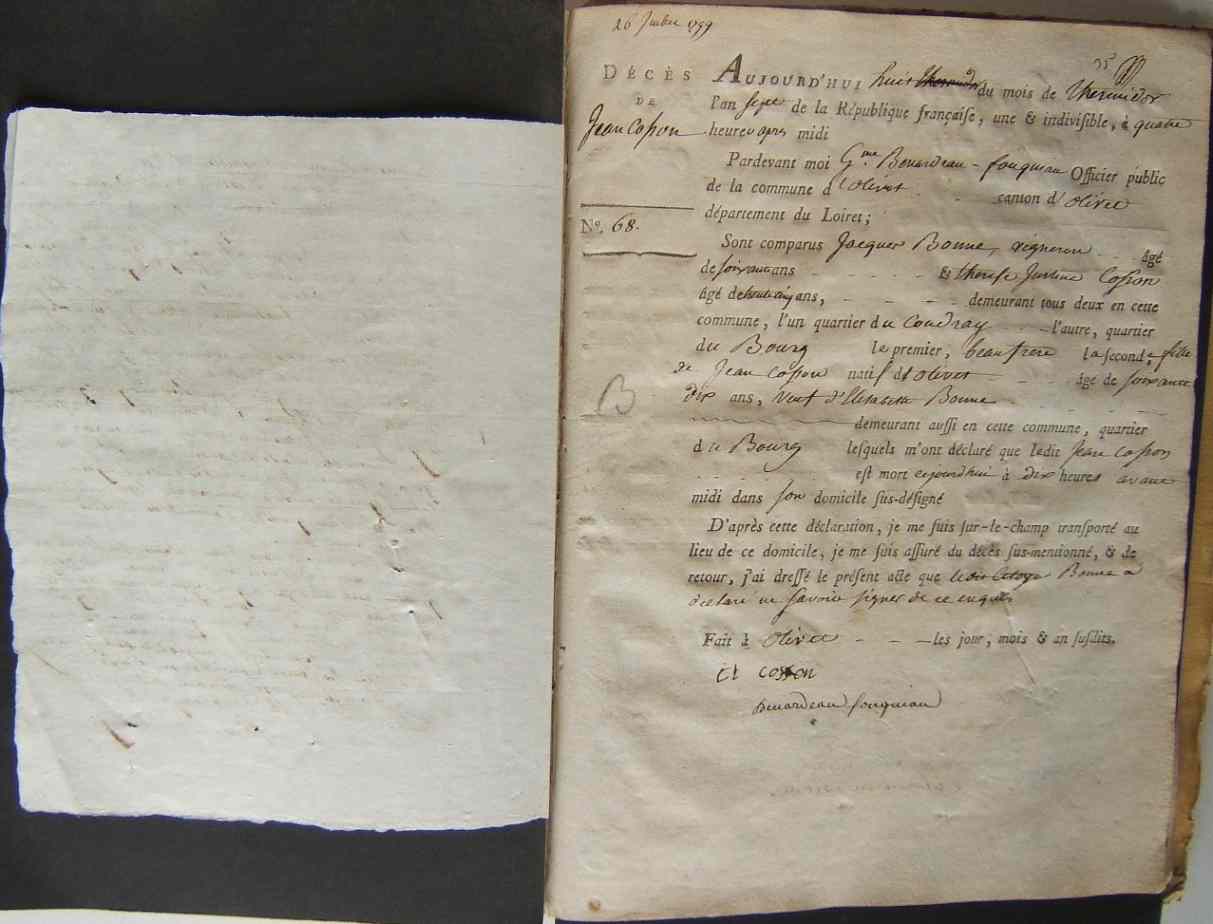 26 Juillet 1799
75
DÉCÈS
DE
Jean Cosson
N°. 68.
B
AUJOURD'HUI huit thermidor du mois de thermidor
l'an sept de la République françaiſe, une & indiviſible, à quatre
heures apres midi
Pardevant moi G.me Benardeau-fouqueau Officier public
de la commune d'olivet canton d'olivet
département du Loiret;
Sont comparus Jacques Bonne, vigneron âgé
de soixante ans & therese Justine Cosson
âgé de ans, demeurant tous deux en cette
commune, l'un quartier du Coudray l'autre, quartier
du Bourg le premier, beaufrere la ſeconde, fille
de Jean Cosson natif d'olivet âgé de soixante
dix ans, veuf d'Elisabeth Bonne
demeurant auſſi en cette commune, quartier
du Bourg leſquels m'ont déclaré que ledit Jean Cosson
eſt mort aujourdhui à dix heures avant
midi dans son domicile ſus-déſigné
D'après cette déclaration, je me ſuis ſur-le-champ tranſporté au
lieu de ce domicile, je me ſuis aſſuré du décès ſus-mentionné, & de
retour, j'ai dreſſé le préſent acte que ledit Citoyen Bonne a
déclaré ne savoir signer de ce enquis
Fait à Olivet les jour, mois & an ſuſdits.
cosson
Benardeau fouqueau